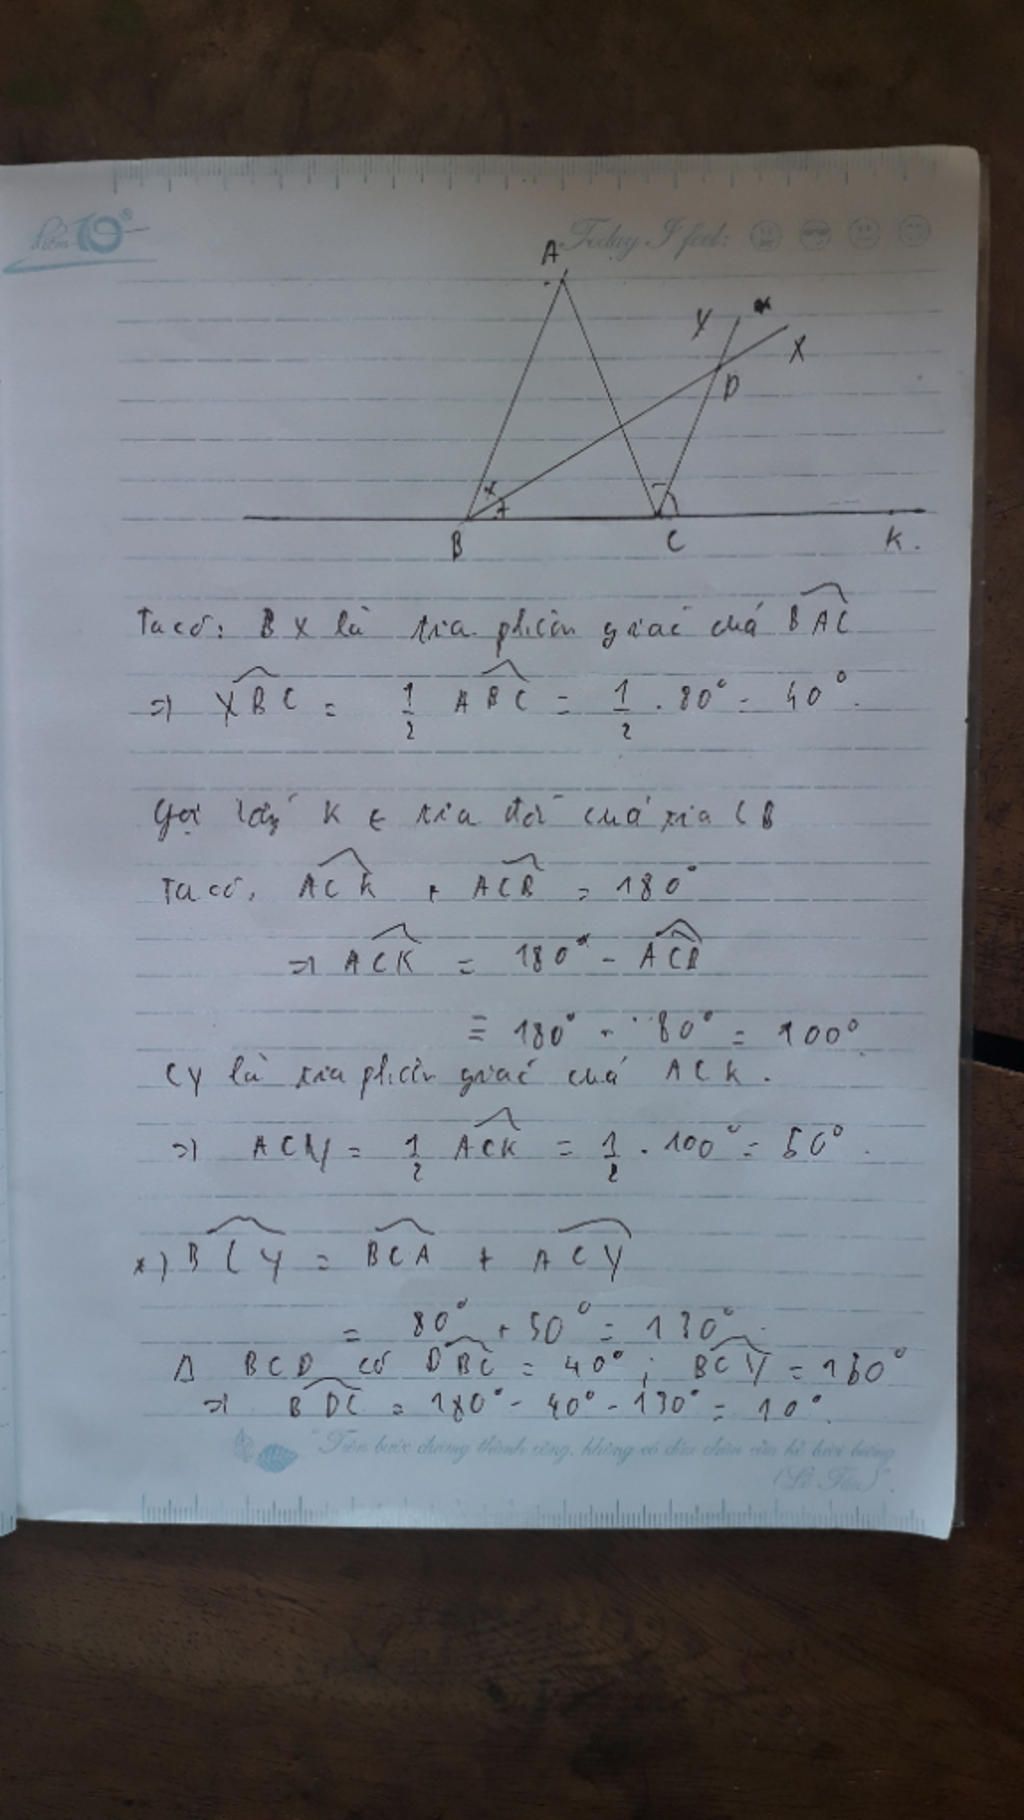 điểm 10
Today I feel:
A
Y
X
D
B
C
K.
Ta có: BX là tia phân giác của BAC
=) XBC = 1/2 ABC = 1/2 . 80° = 40°.
Gọi lấy K ∈ tia đối của tia CB
Ta có, ACK + ACB = 180°
=) ACK = 180° - ACB
= 180° - 80° = 100°
CY là tia phân giác của ACK.
=) ACY = 1/2 ACK = 1/2 . 100° = 50°.
*) BCY = BCA + ACY
= 80° + 50° = 130°.
Δ BCD có DBC = 40° ; BCY = 130°
=) BDC = 180° - 40° - 130° = 10°.
"Trên bước đường thành công, không có dấu chân của kẻ lười biếng
(Lỗ Tấn)".